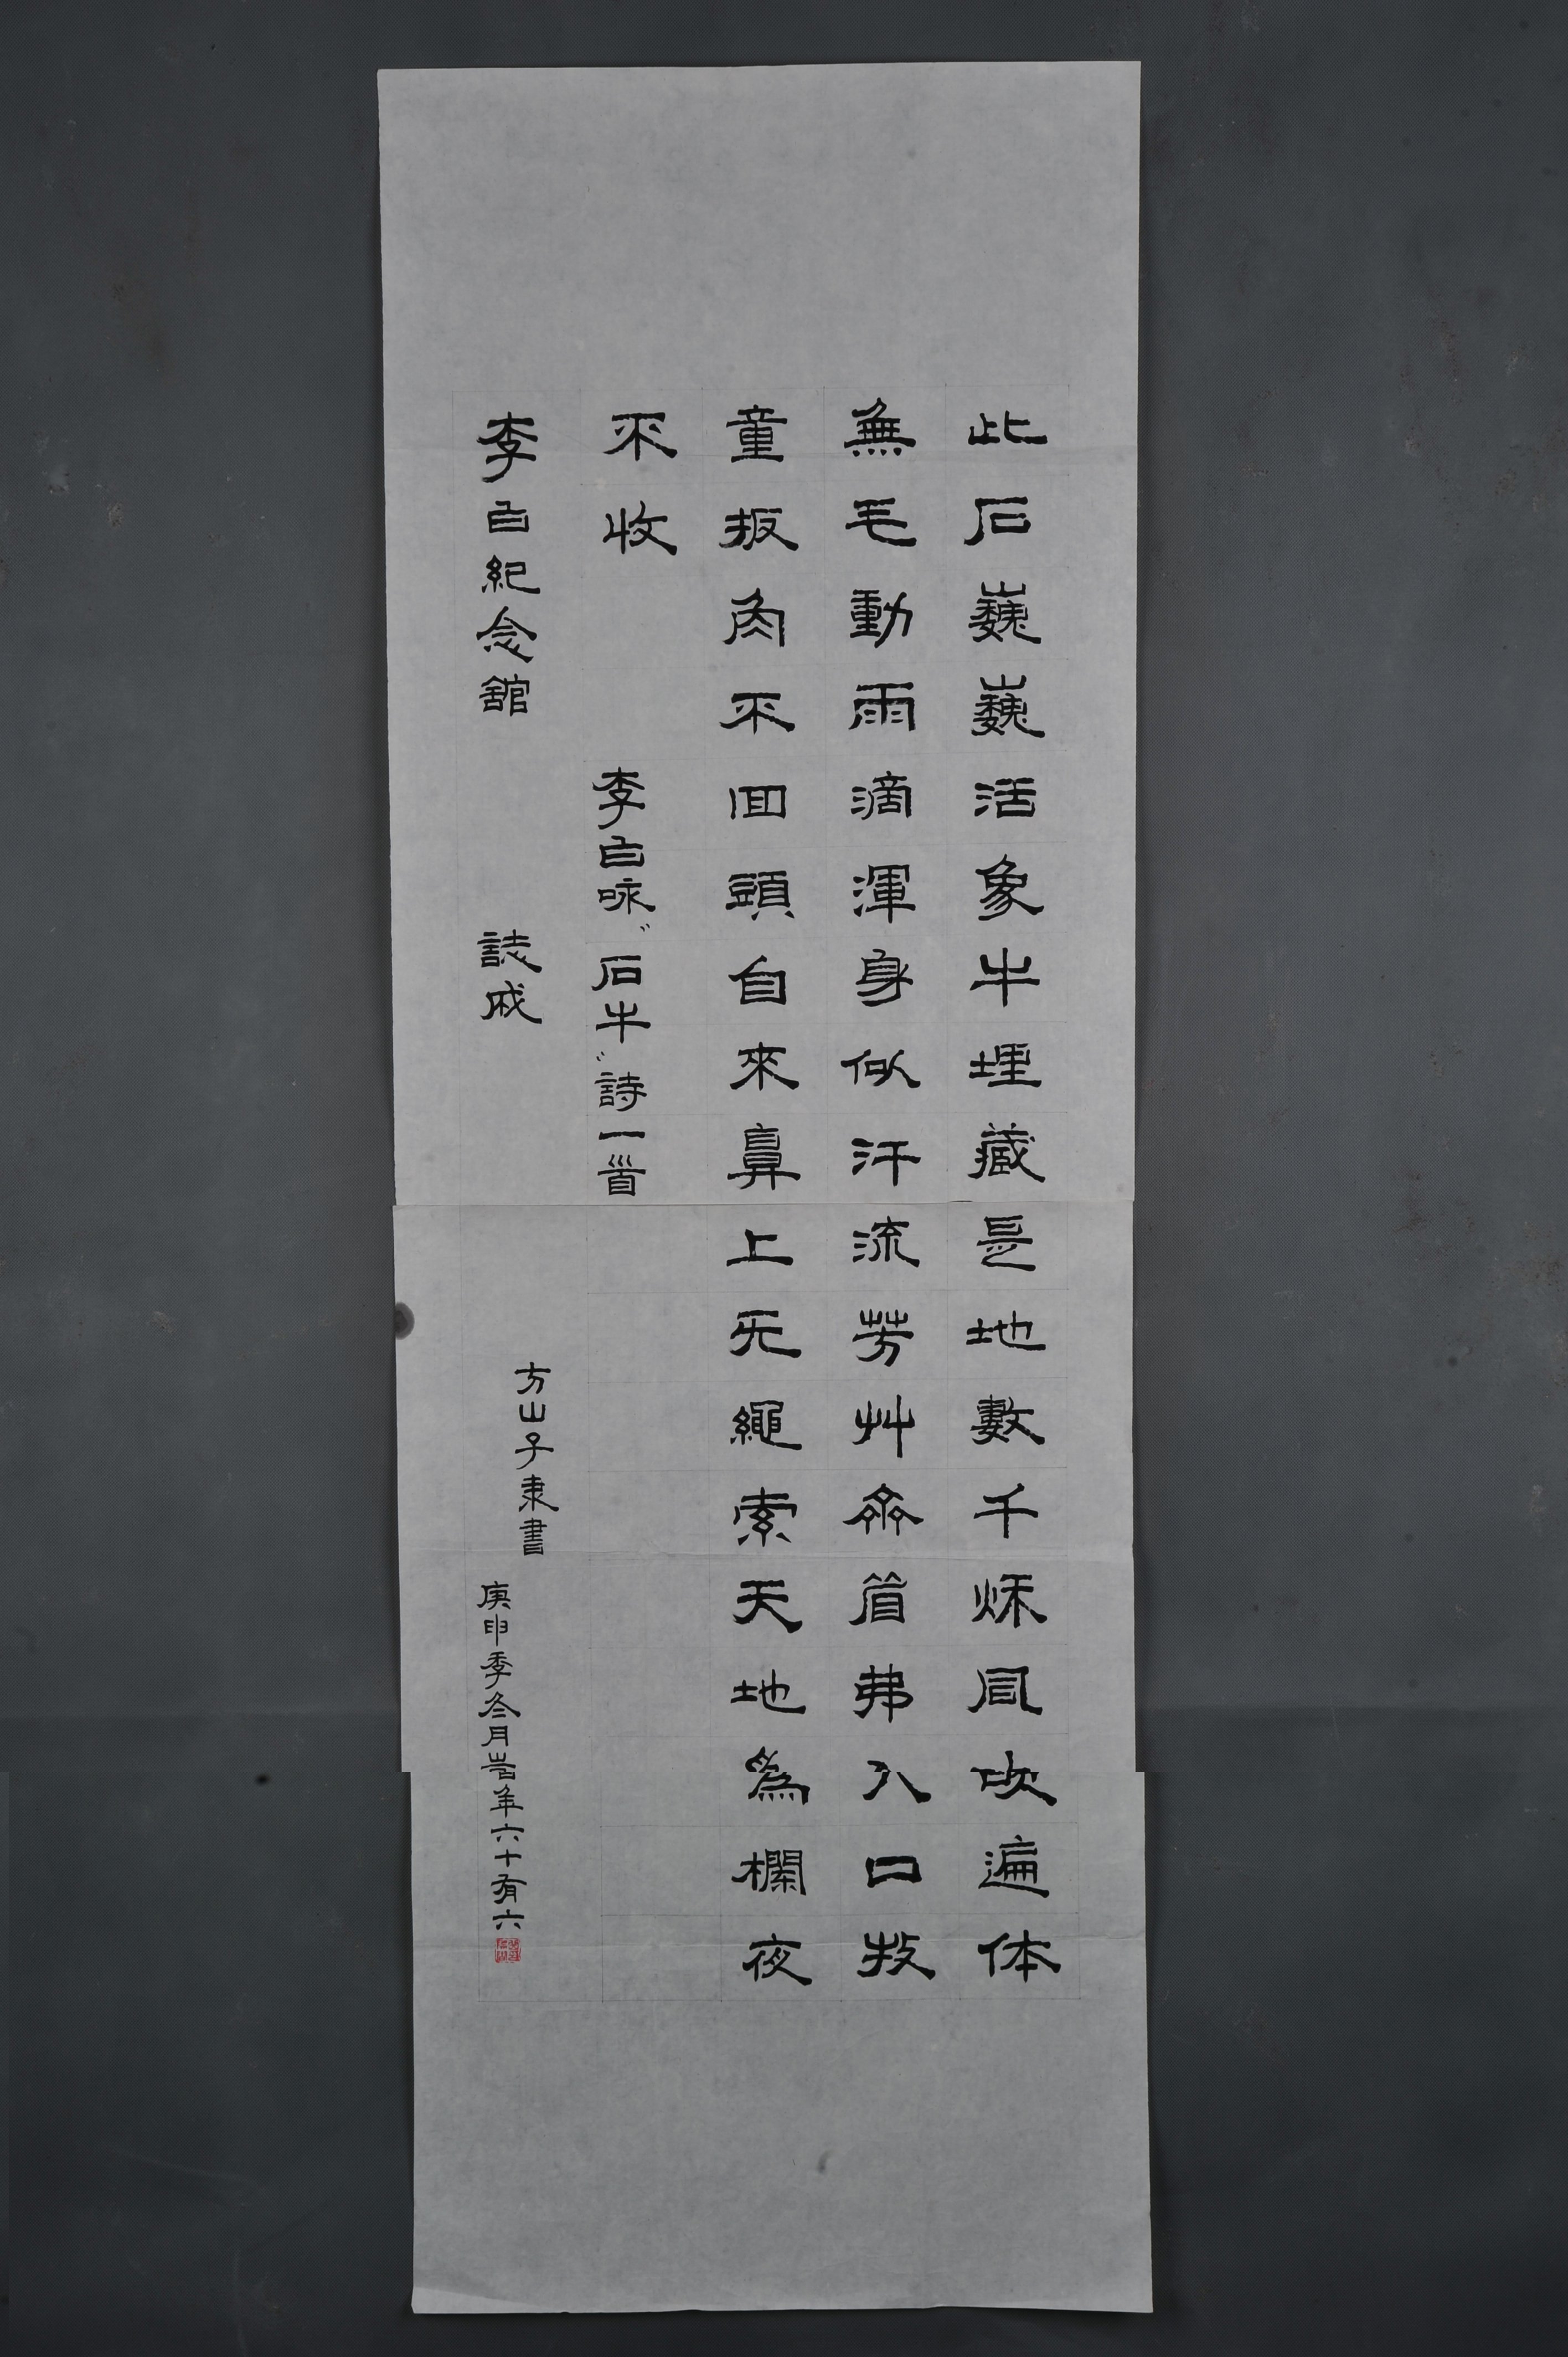 此石巍巍活象牛埋藏是地數千秌風吹遍体
無毛動雨滴渾身似汗流芳艸齊眉弗入口牧
童扳角不回頭自來鼻上无繩索天地為欄夜
不收
李白咏“石牛”詩一首
李白紀念館
誌成
方山子隶書
庚申季冬月旹年六十有六